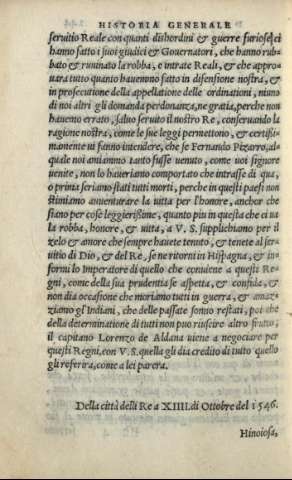 HISTORIA GENERALE
seruitio Reale con quanti dishordini & guerre furiose ci
hanno fatto i suoi giudici & Gouernatori, che hanno rub-
bato & ruuinato la robba, e intrate Reali, & che appro-
uara tutto quanto hauemno fatto in difensione nostra, &
in prosecutione della appellatione delle ordinationi, niuno
di noi altri gli domanda perdonanza, ne gratia, perche non
hauemo errato, saluo seruito il nostro Re, conseruando la
ragione nostra, come le sue leggi permettono, & certissi-
manente ui fanno intendere, che se Fernando Pizarro, al-
quale noi amiamno tanto fusse uenuto, come uoi signore
uenite, non lo haueriamo comportato che intrasse di qua,
o prima seriamo stati tutti morti, perche in questi paesi non
stimiamo auuenturare la uitta per l'honore, anchor che
siano per cose leggierissime, quanto piu in questa che ci ua
la robba, honore, & uitta, a V. S. supplichiamo per il
zelo & amore che sempre hauete tenuto, & tenete al ser-
uitio di Dio, & del Re, se ne ritorni in Hispagna, & in-
formi lo Imperatore di quello che conuiene a questi Re-
gni, come della sua prudentia se aspetta, & confida, &
non dia occasione che moriamo tutti in guerra, & amaz-
ziamo gl'Indiani, che delle passate sonno restati, poi che
della determinatione di tutti non puo riuscire altro frutto,
il capitano Lorenzo de Aldana uiene a negociare per
questi Regni, con V. S. quella gli dia credito di tutto quello
gli referira, come a lei parera.
Della città delli Re a XIIII. di Ottobre del 1546.
Hinoiosa,